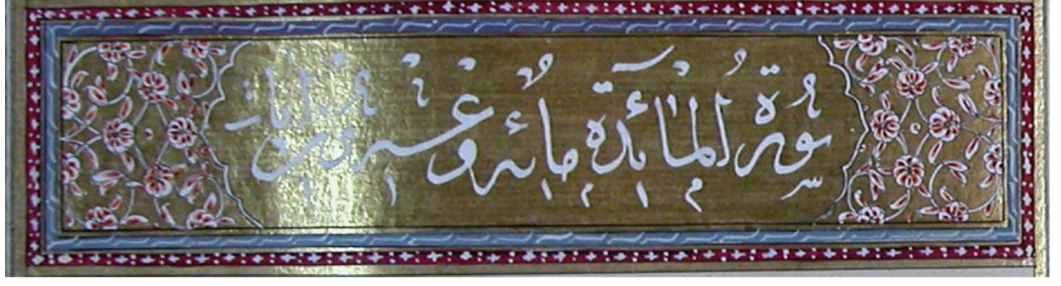 سُورَةُ الْمَائِدَةِ مِائَةٌ وَعِشْرُونَ آيَات